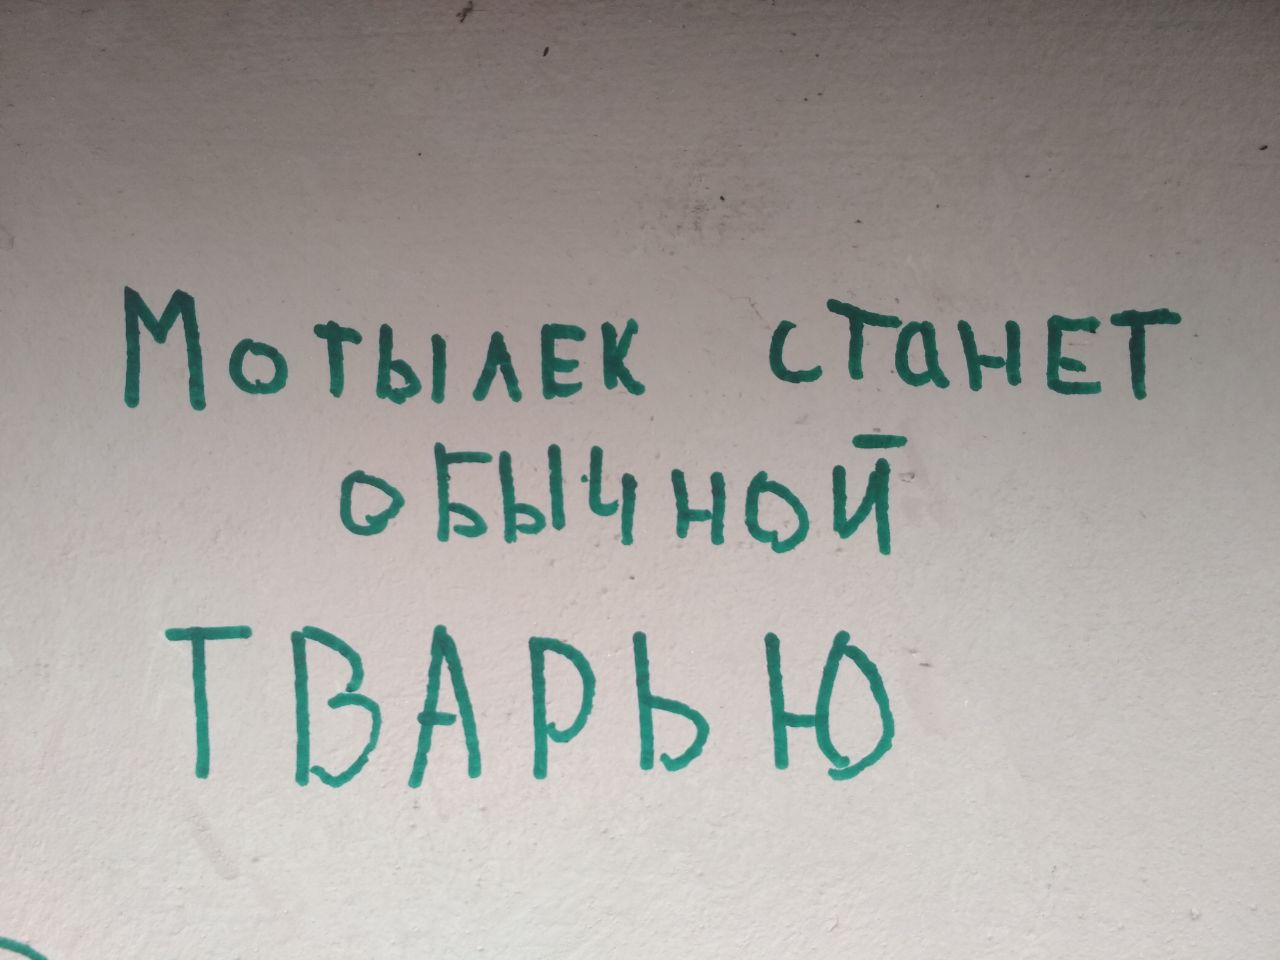 Мотылек станет
обычной
ТВАРЬЮ